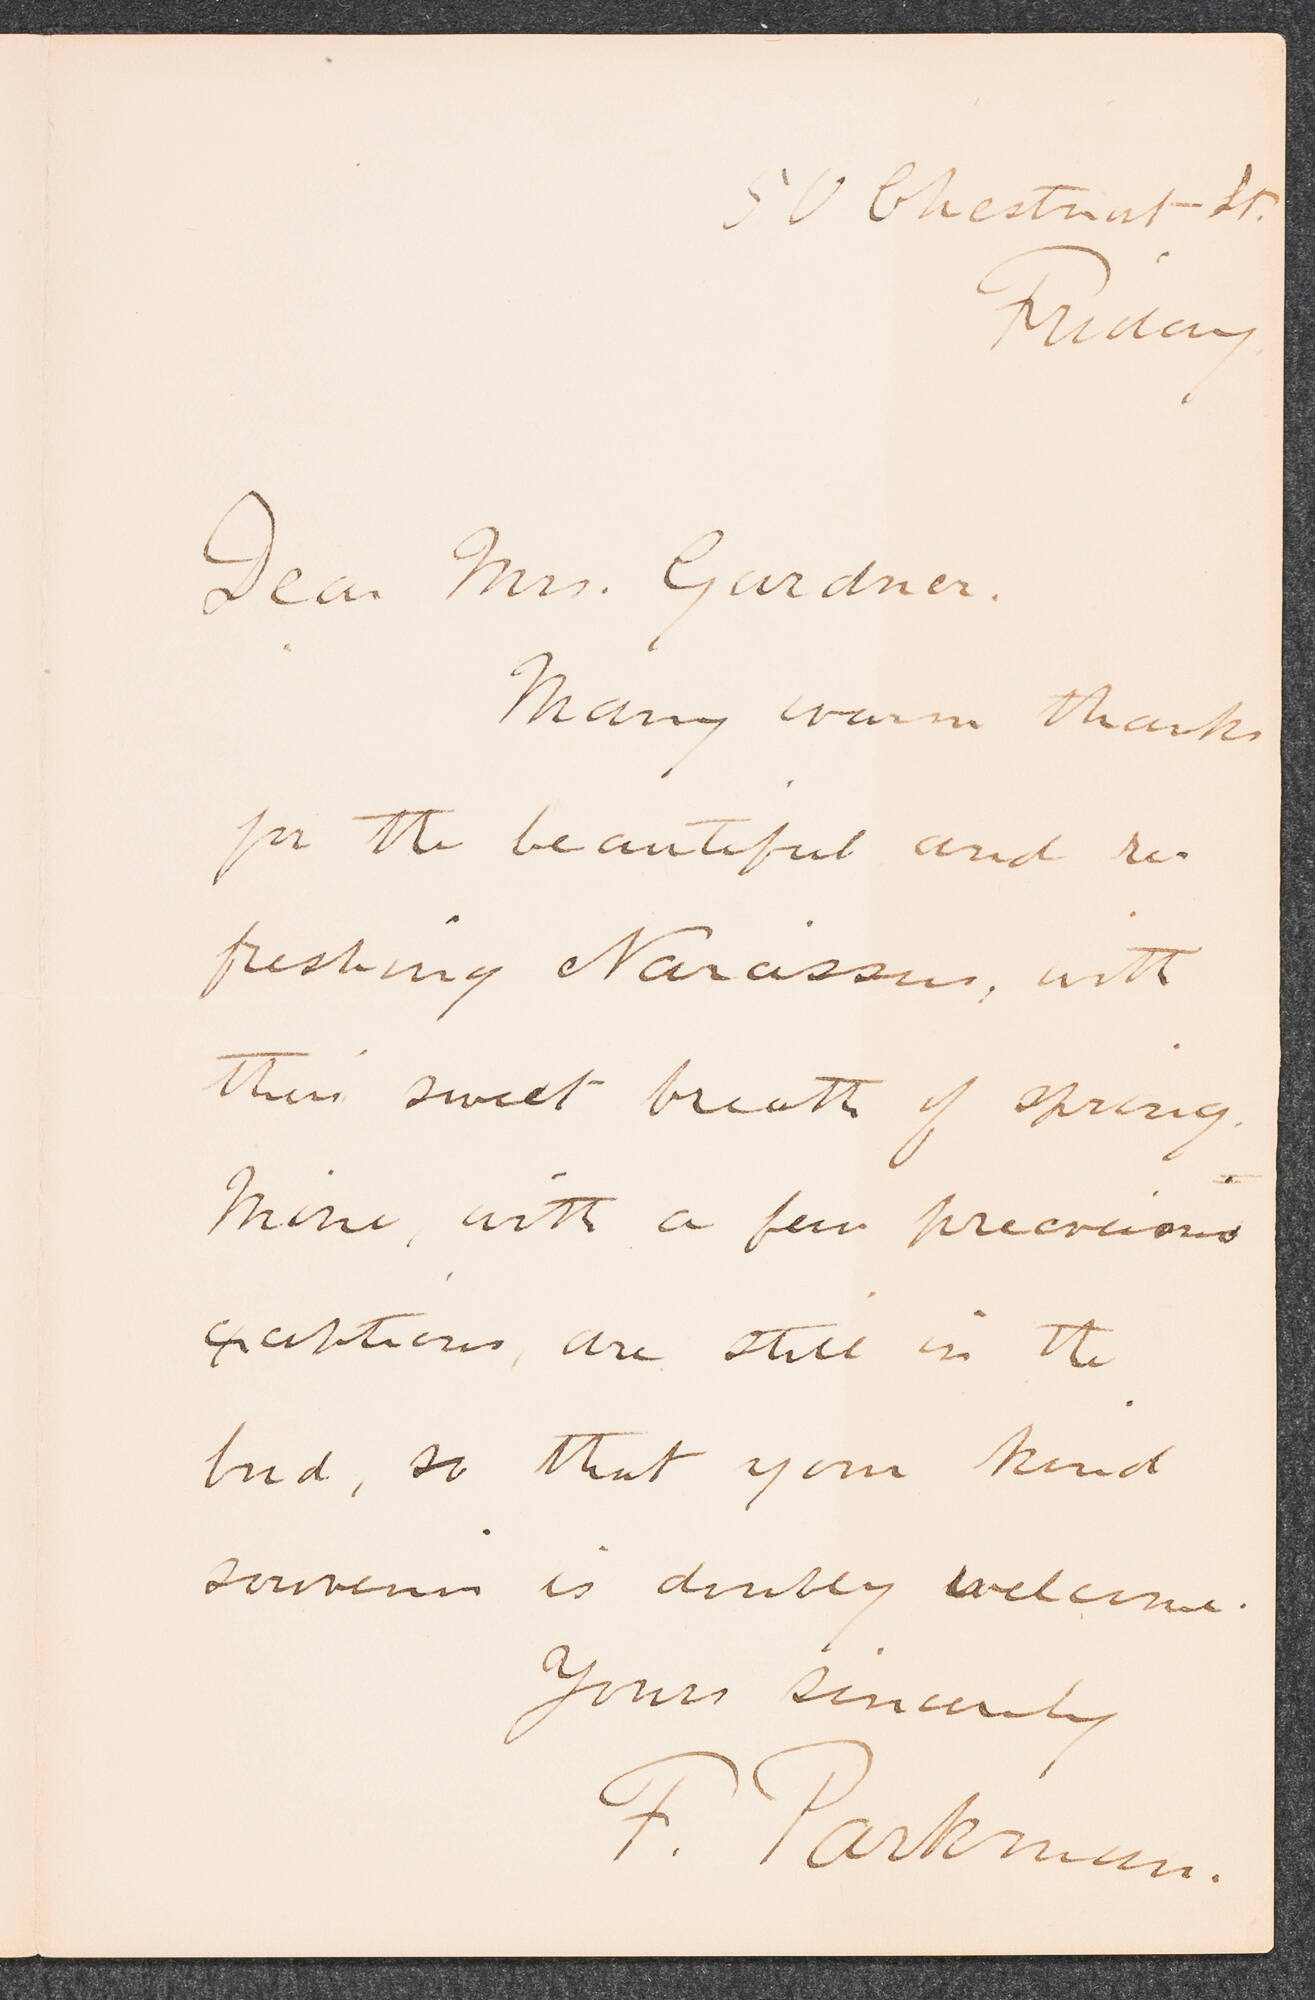 50 Chestnut St.
Friday.
Dear Mrs. Gardner.
Many warm thanks
for the beautiful and re-
freshing Narcissus, with
their sweet breath of spring.
Mine, with a few precocious
exceptions, are still in the
bud, so that your kind
souvenir is doubly welcome.
Yours sincerely
F. Parkman.